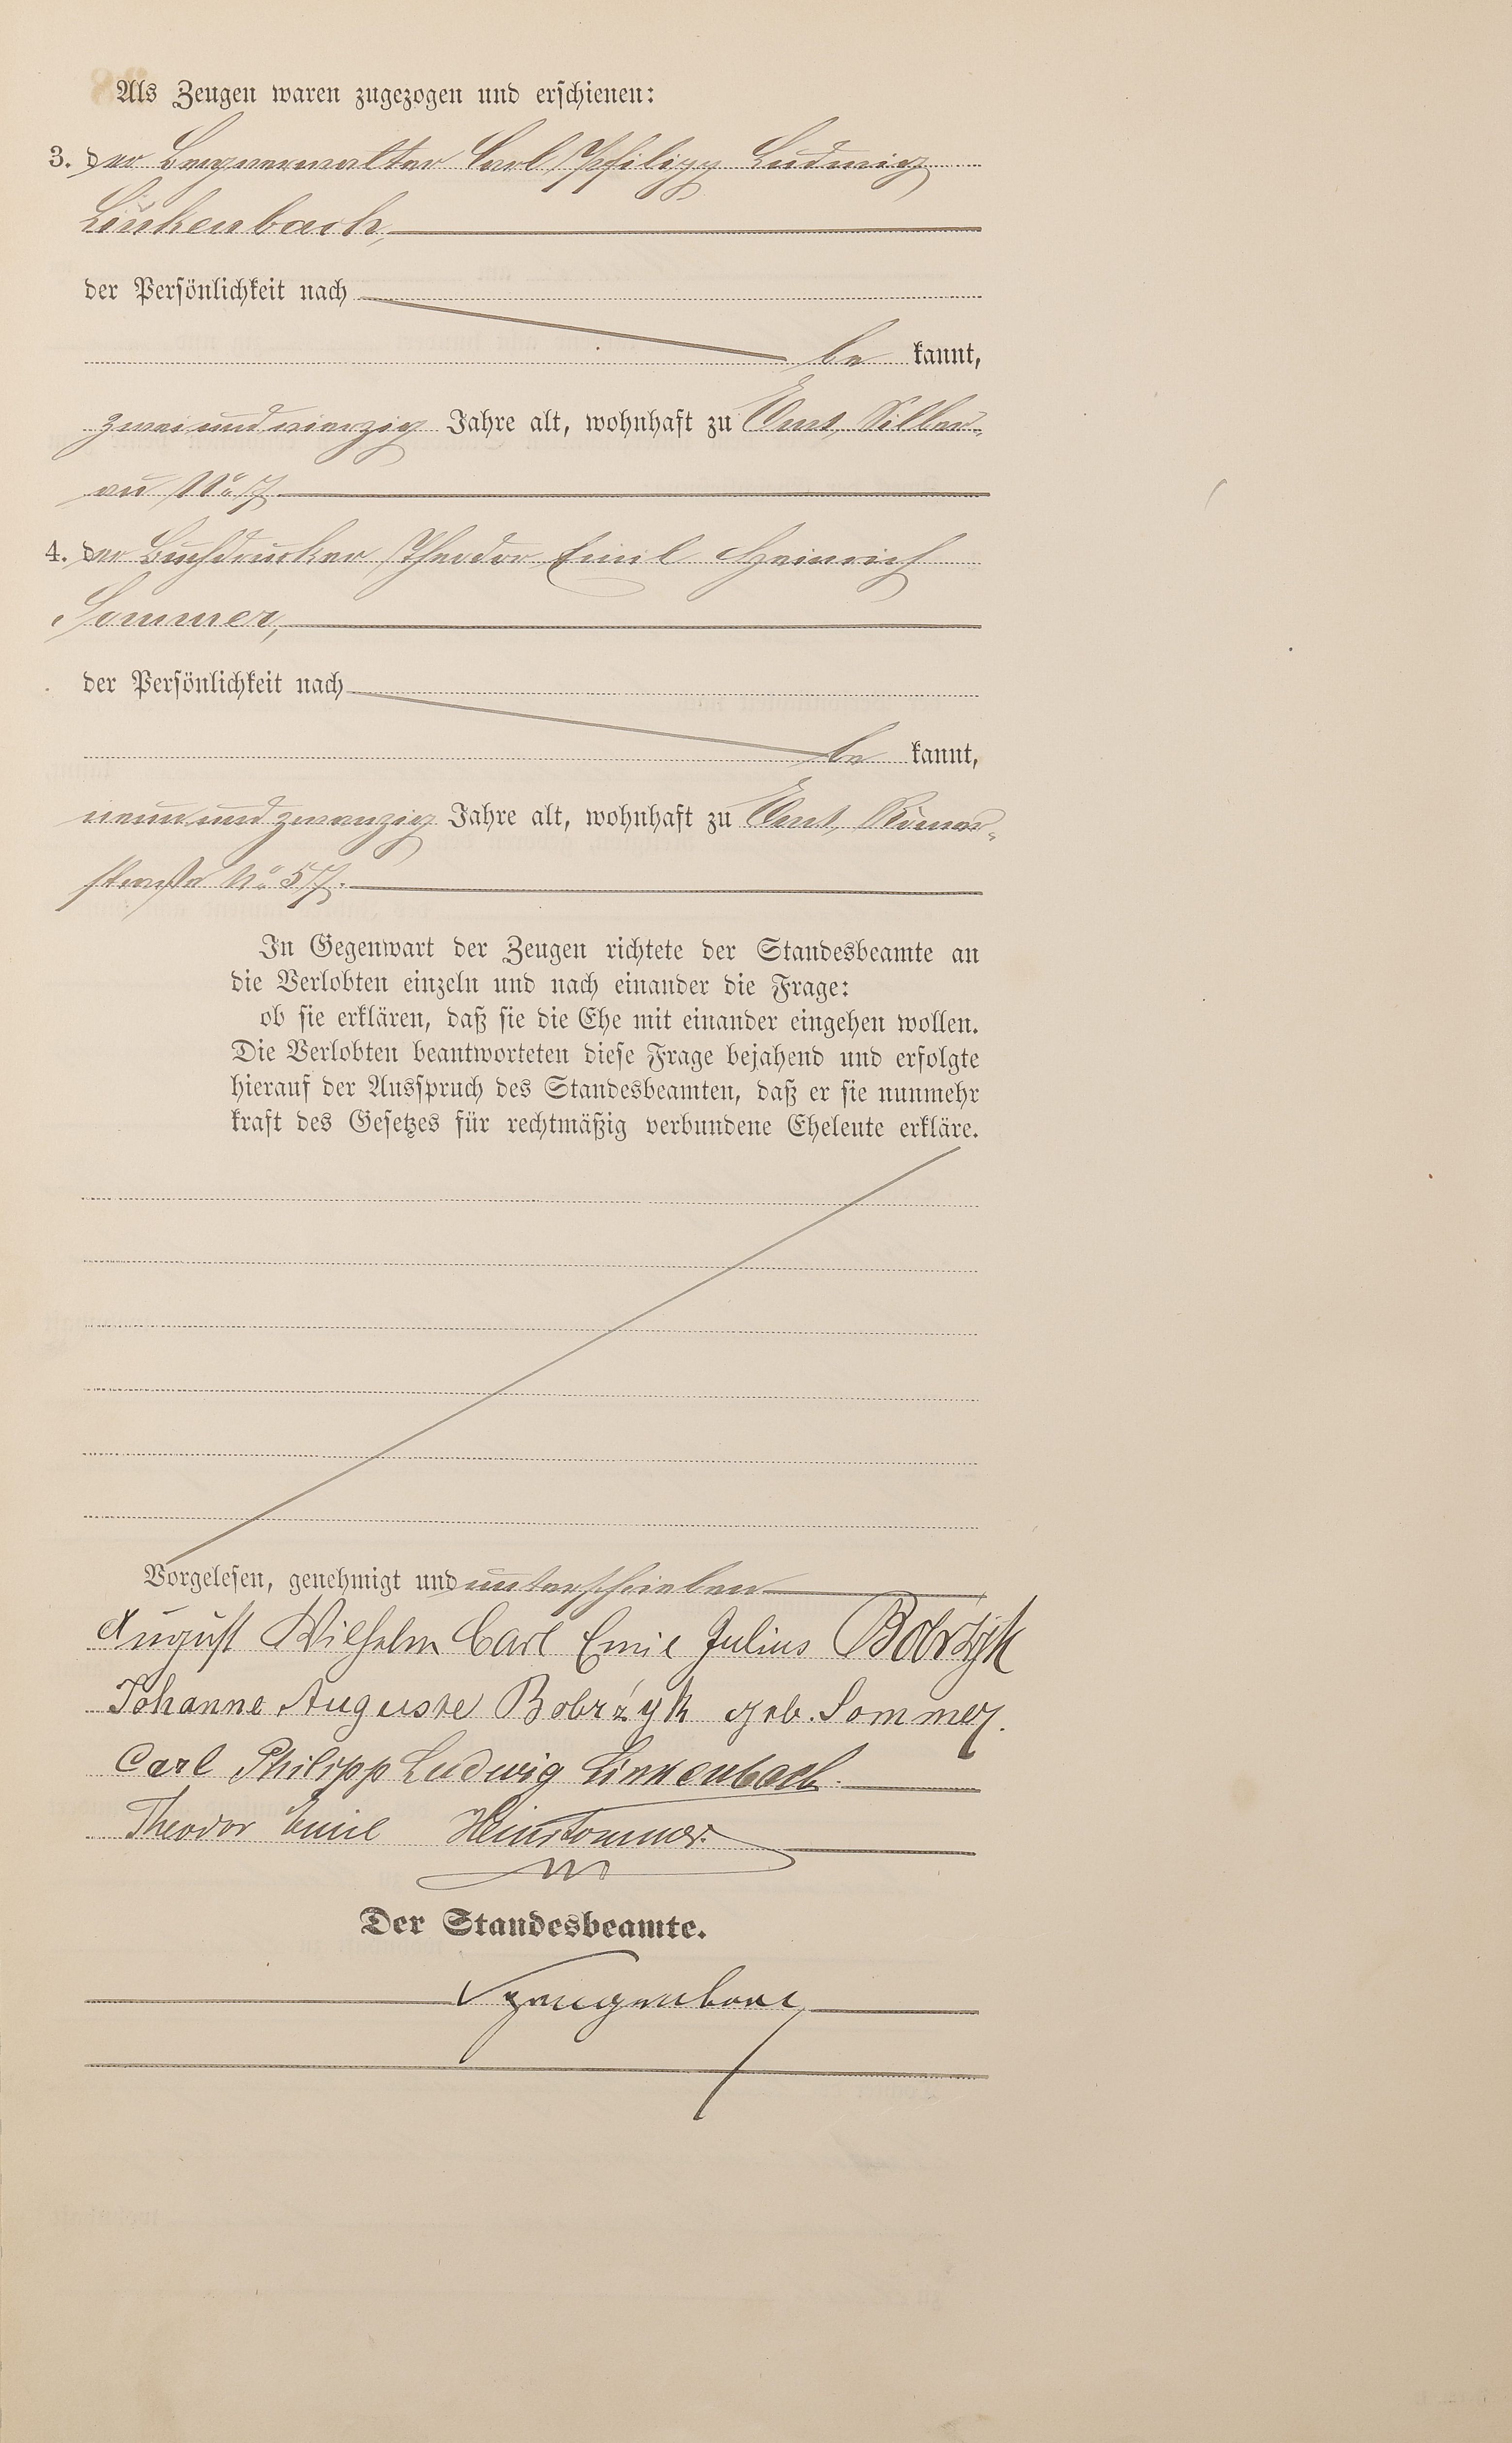 Als Zeugen waren zugezogen und erschienen:
3. der Bergverwalter Carl Philipp Ludwig
Linkenbach,
der Persönlichkeit nach
be kannt,
zweiundvierzig Jahre alt, wohnhaft zu Ems, Silber-
au No 7
4. der Buchdrucker Theodor Emil Heinrich
Sommer,
der Persönlichkeit nach
be kannt,
neunundzwanzig Jahre alt, wohnhaft zu Ems, Römer-
straße No 57.
In Gegenwart der Zeugen richtete der Standesbeamte an
die Verlobten einzeln und nach einander die Frage:
ob sie erklären, daß sie die Ehe mit einander eingehen wollen.
Die Verlobten beantworteten diese Frage bejahend und erfolgte
hierauf der Ausspruch des Standesbeamten, daß er sie nunmehr
kraft des Gesetzes für rechtmäßig verbundene Eheleute erkläre.
Vorgelesen, genehmigt und unterschrieben
August Wilhelm Carl Emil Julius Bobrzyk
Johanne Auguste Bobrżyk geb. Sommer.
Carl Philipp Ludwig Linkenbach.
Theodor Emil Heinr Sommer.
Der Standesbeamte.